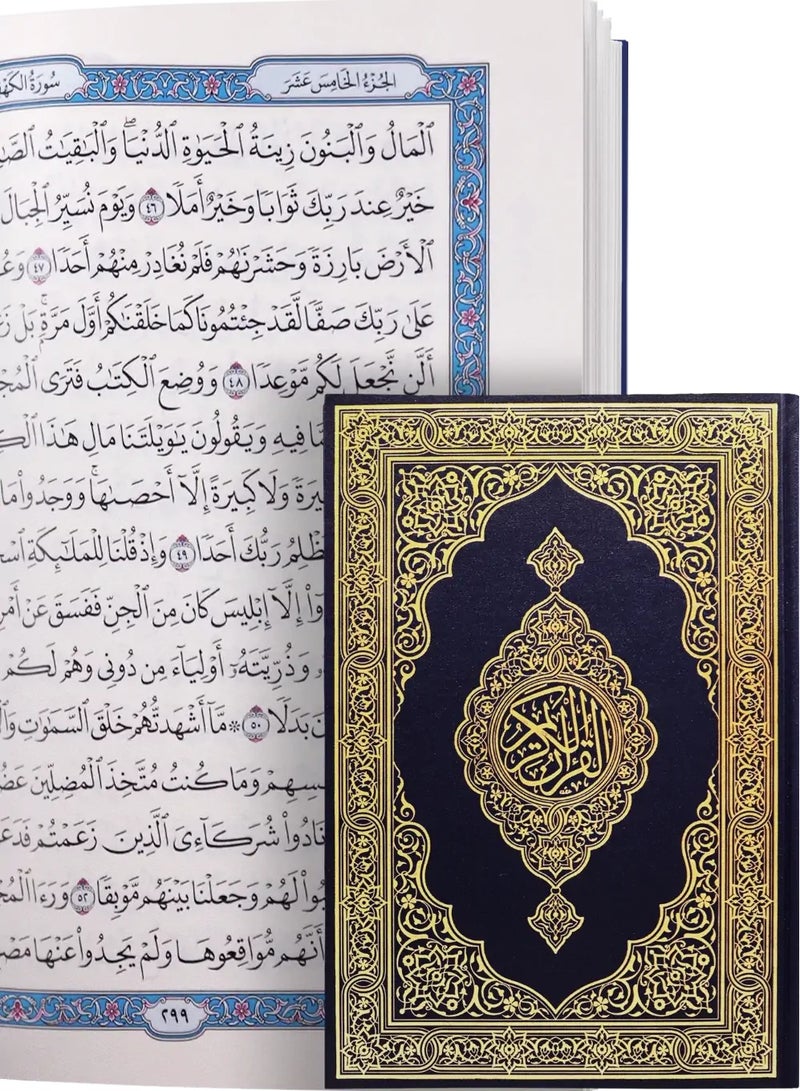 الجُزْءُ الخَامِسَ عَشَرَ
سُورَةُ الكَهْفِ
ٱلْمَالُ وَٱلْبَنُونَ زِينَةُ ٱلْحَيَوٰةِ ٱلدُّنْيَاۖ وَٱلْبَٰقِيَٰتُ
خَيْرٌ عِندَ رَبِّكَ ثَوَابًا وَخَيْرٌ أَمَلًا ٤٦ وَيَوْمَ نُسَيِّرُ ٱلْجِبَالَ
ٱلْأَرْضَ بَارِزَةً وَحَشَرْنَٰهُمْ فَلَمْ نُغَادِرْ مِنْهُمْ أَحَدًا ٤٧
عَلَىٰ رَبِّكَ صَفًّا لَّقَدْ جِئْتُمُونَا كَمَا خَلَقْنَٰكُمْ أَوَّلَ مَرَّةٍۭۚ بَلْ
أَلَّن نَّجْعَلَ لَكُم مَّوْعِدًا ٤٨ وَوُضِعَ ٱلْكِتَٰبُ فَتَرَى
فِيهِ وَيَقُولُونَ يَٰوَيْلَتَنَا مَالِ هَٰذَا
وَلَا كَبِيرَةً إِلَّآ أَحْصَىٰهَاۚ وَوَجَدُوا۟ مَا
رَبُّكَ أَحَدًا ٤٩ وَإِذْ قُلْنَا لِلْمَلَٰٓئِكَةِ
إِلَّآ إِبْلِيسَ كَانَ مِنَ ٱلْجِنِّ فَفَسَقَ عَنْ
وَذُرِّيَّتَهُۥٓ أَوْلِيَآءَ مِن دُونِى وَهُمْ لَكُمْ
بَدَلًا ٥٠ ۞ مَّآ أَشْهَدتُّهُمْ خَلْقَ ٱلسَّمَٰوَٰتِ
وَمَا كُنتُ مُتَّخِذَ ٱلْمُضِلِّينَ
شُرَكَآءِىَ ٱلَّذِينَ زَعَمْتُمْ
لَهُمْ وَجَعَلْنَا بَيْنَهُم مَّوْبِقًا ٥٢ وَرَءَا
أَنَّهُم مُّوَاقِعُوهَا وَلَمْ يَجِدُوا۟ عَنْهَا
٢٩٩
القرآن الكريم